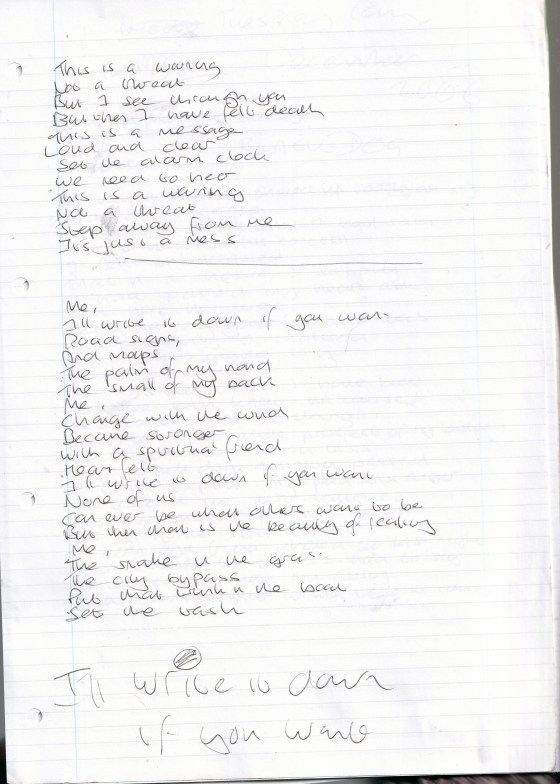 This is a warning
Not a threat
But I see through you
But then I have felt death
This is a message
Loud and clear
Set the alarm clock
We need to hear
This is a warning
Not a threat
Step away from me
It's just a mess
Me,
I'll write it down if you want
Road signs,
And maps
The palm of my hand
The small of my back
Me,
Change with the wind
Became stronger
With a spiritual friend
Heartfelt
I'll write it down if you want
None of us
Can ever be what others want to be
But then that is the beauty of
Me,
The snake in the grass
The city bypass
Put that in the
Set the task
I'll write it down
if you want